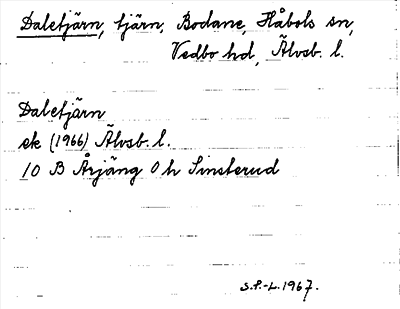 Daletjärn, tjärn, Bodane, Håbols sn,
Vedbo hd, Älvsb. l.
Daletjärn
ek (1966) Älvsb. l.
10 B Årjäng 0 h Sinsterud
S.P.-L. 1967.